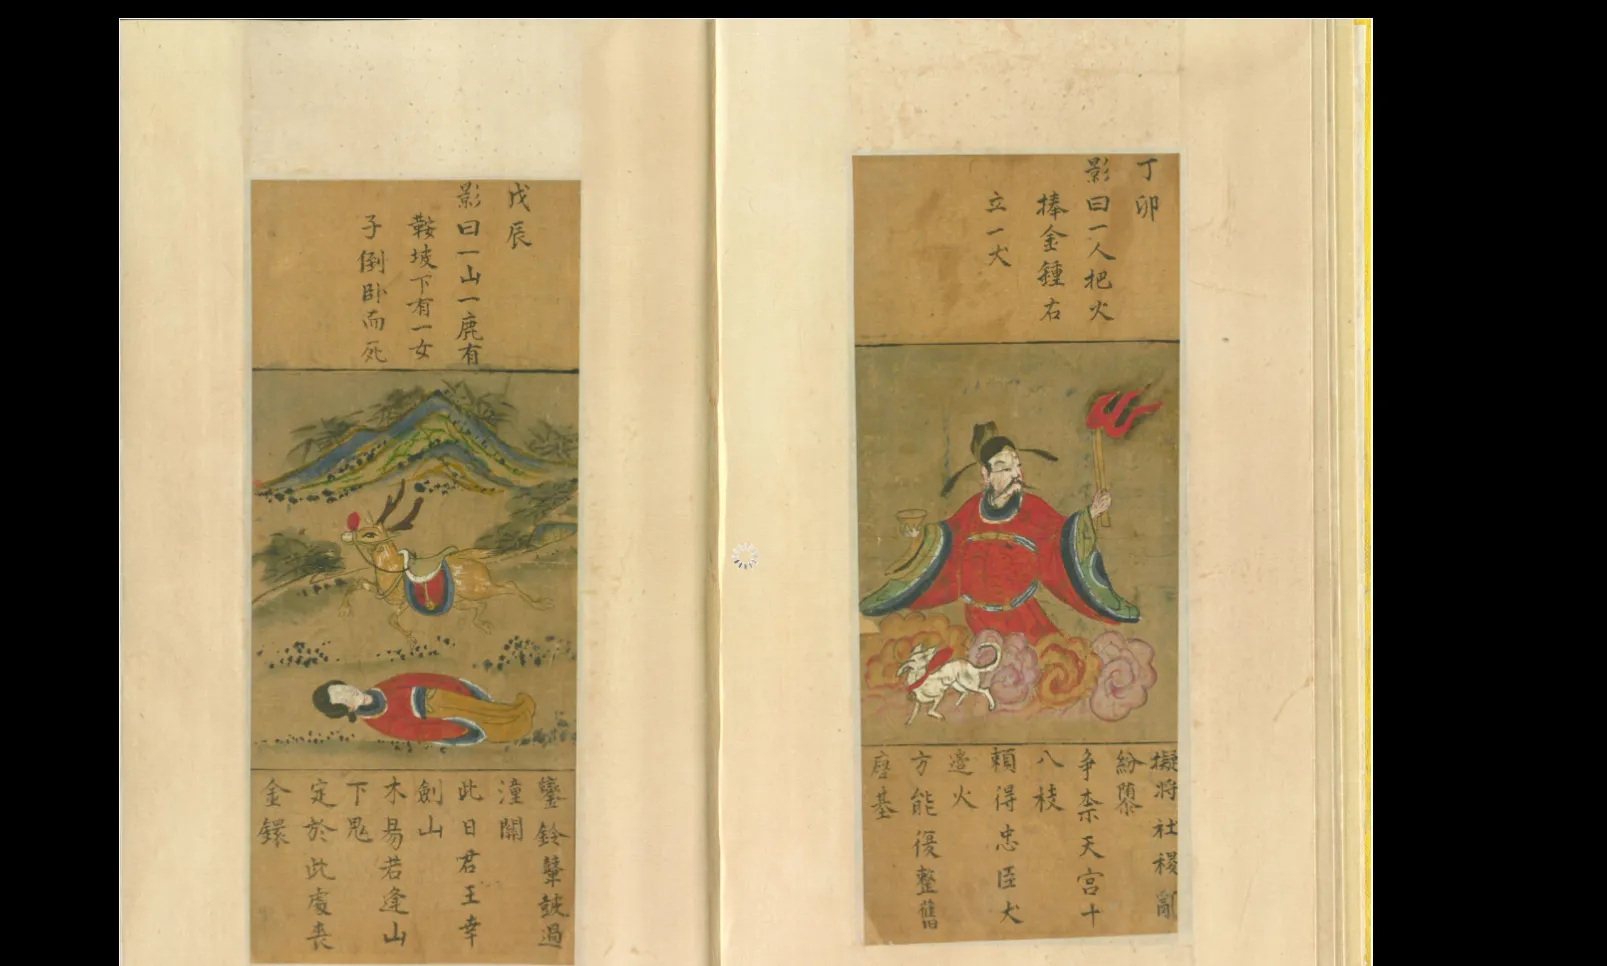 丁卯
影曰一人把火
捧金鍾右
立一犬
擬將社稷亂
紛
争柰天宮十
八枝
賴得忠臣犬
邉火
方能復整舊
唐基
戊辰
影曰一山一鹿有
鞍坡下有一女
子倒卧而死
鑾鈴鼙鼓過
潼關
此日君王幸
劍山
木易若逢山
下鬼
定於此處喪
金鐶